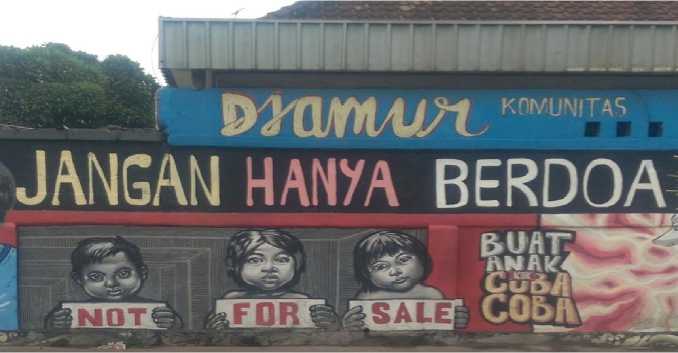 Djamur KOMUNITAS
JANGAN HANYA BERDOA
NOT FOR SALE
BUAT
ANAK
COBA
COBA